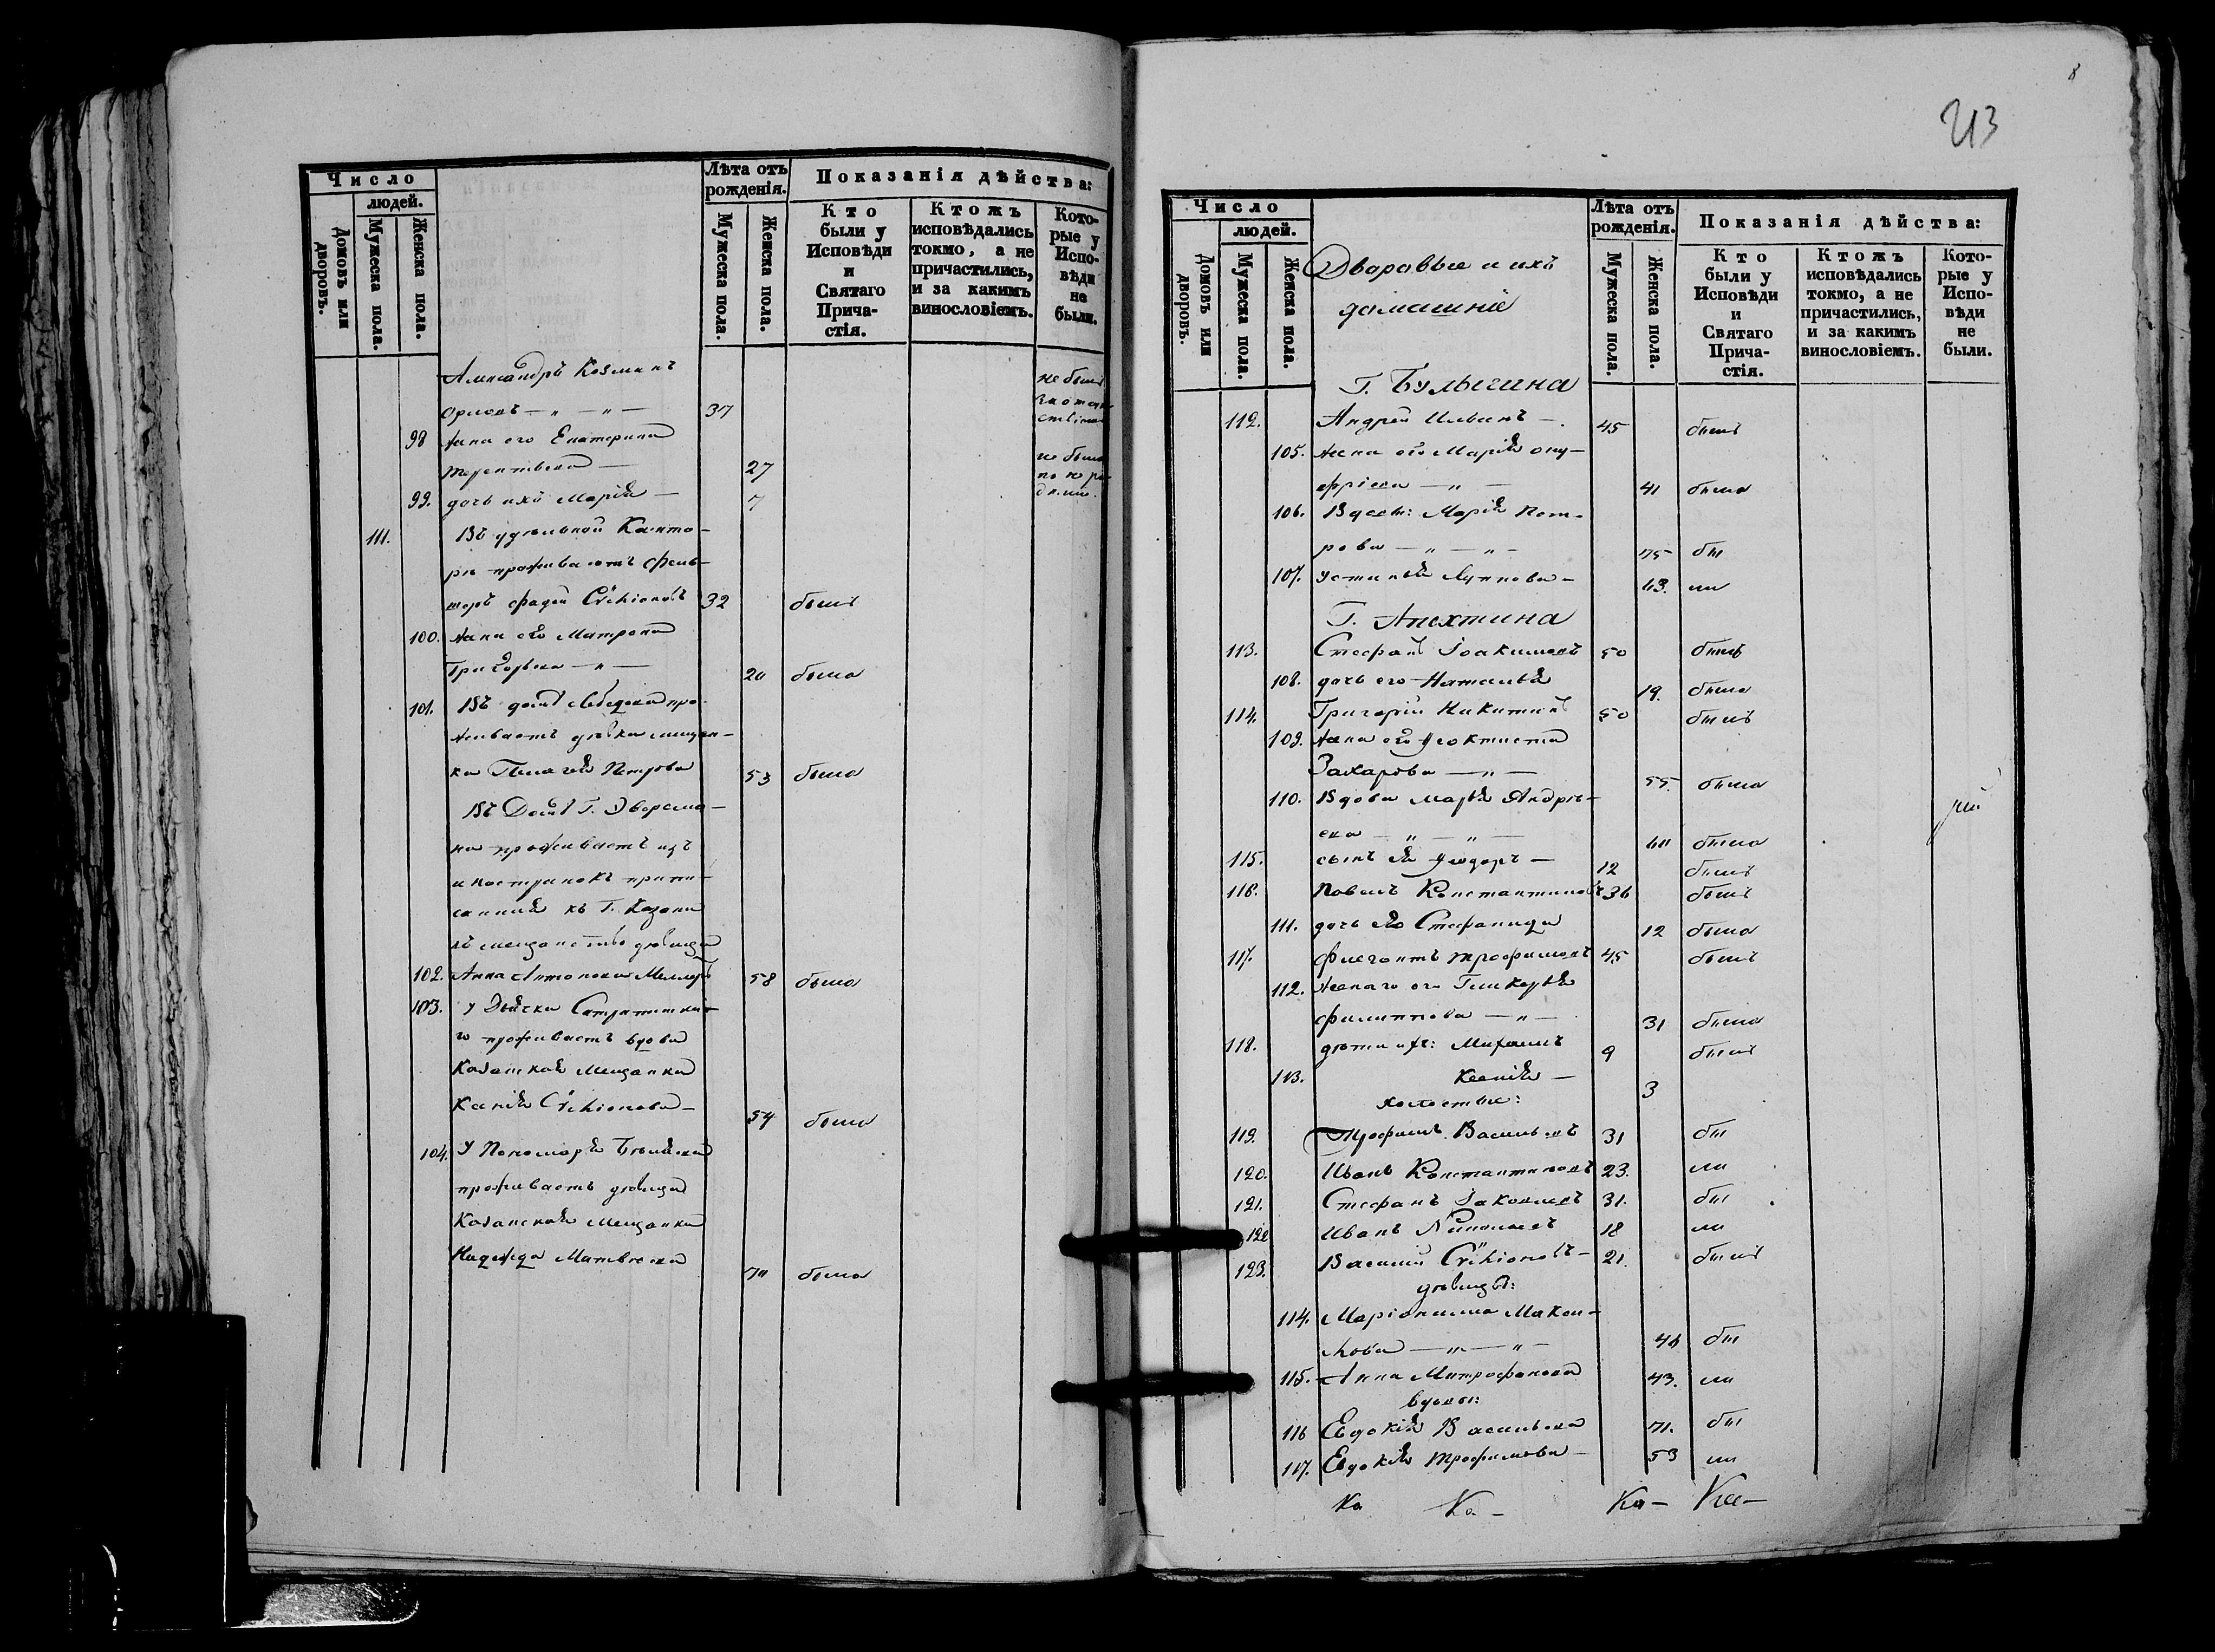 Число
людей.
Домовъ или дворовъ.
Мужеска пола.
Женска пола.
Лѣта отъ рожденія.
Мужеска пола.
Женска пола.
Показанія дѣйства:
Кто были у Исповѣди и Святаго Причастія.
Ктожъ исповѣдались токмо, а не причастились, и за какимъ винословіемъ.
Которые у Исповѣди не были.
Александръ Козминъ не былъ
Орловъ — „ — „ — 37 за отсут
ствіем
98 Жена его Екатерина
Терентьева — 27 не была
99. дочь ихъ Марія — 7
111. Въ удѣльной Канто-
рѣ проживаютъ фель-
шеръ Фадей 32 былъ
100. Жена его Матрона
Григорьева — „ — 20 была
101. Въ домѣ Лебедева про-
живаетъ дѣвка мещан-
ка Пелагея Петрова 53 была
Въ Домѣ Г. Эверсма-
на проживаетъ изъ
иностранокъ припи-
санная къ Г. Казани
въ мещанство дѣвица
102. Анна Антонова 58 была
103. У Дьячка
го проживаетъ вдова
Казанская Мещанка
54 была
104. У Пономаря
проживаетъ дѣвица
Казанская Мещанка
Надежда Матвѣева 70 была
8
213
Число
людей.
Домовъ или дворовъ.
Мужеска пола.
Женска пола.
Лѣта отъ рожденія.
Мужеска пола.
Женска пола.
Показанія дѣйства:
Кто были у Исповѣди и Святаго Причастія.
Ктожъ исповѣдались токмо, а не причастились, и за какимъ винословіемъ.
Которые у Исповѣди не были.
Дворовые и ихъ
домашніе
Г. Булыгина
112. Андрей Ильинъ — 45 былъ
105. Жена его Марія Ону-
фріева — „ — 41 была
106. Вдовы: Марія Пет-
рова — „ — „ — 75 бы
107. Устинья 43. ли
Г. Апехтина
113. Стефанъ Іоакимовъ 50 былъ
108. дочь его Наталья 19. была
114. Григорій Никитинъ 50 былъ
109. Жена его Ѳеоктиста
Захарова — „ — 55. была
110. Вдова Марья Андрѣ-
ева — „ — „ — 60 была
115. сынъ ея Ѳеодоръ — 12 былъ
116. Павелъ Константиновъ 36 былъ
111. дочь его Стефанида 12 была
117. Флегонтъ Трофимовъ 45 былъ
112. Жена его Гликерья
Филиппова — „ — 31 была
118. дѣти ихъ: Михаилъ 9 былъ
113. Ксенія — 3
холостые:
119. Трофимъ Васильевъ 31 бы
120. Иванъ Константиновъ 23. ли
121. Стефанъ Іаковлевъ 31. бы
122 Иванъ 18 ли
123. Василій 21. былъ
дѣвицы:
114. Маріонилла Макси-
мова — „ — „ — 46 бы
115. Анна Митрофанова 43. ли
вдовы:
116 Евдокія Васильева 71. бы
117. Евдокія Трофимова — 53 ли